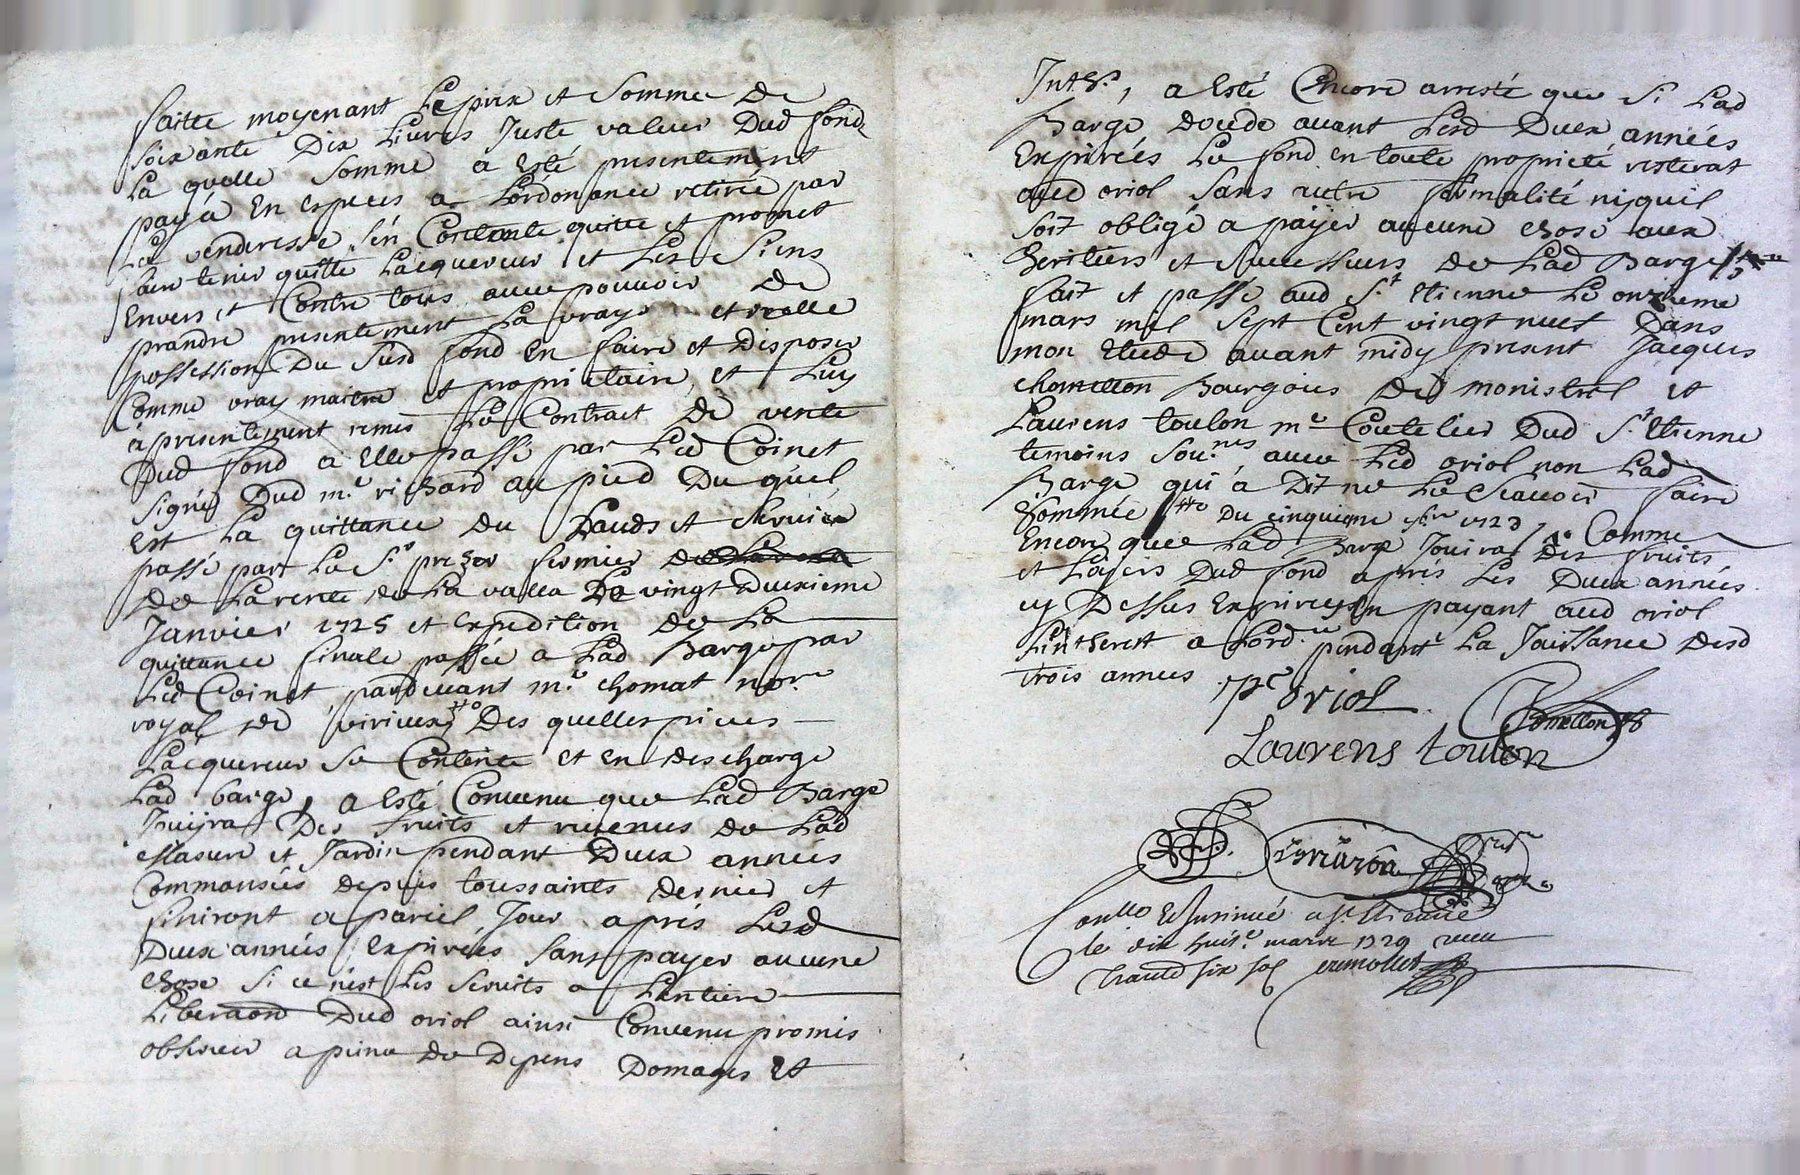 faitte moyenant Le prix et somme de
soixante Dix Livres Juste valeur Dud fond
La quelle somme a esté presentement
payéé En especes a Lordonance retirée par
La venderesse s'en Contente quitte et promet
faire tenir quitte Lacquereur et Les siens
Envers et Contre tous avec pouvoir de
prandre presentement La vraye et realle
possession Du susd fond En faire et Disposer
Comme vray maitre et proprietaire, et Luy
à presentement remis Le Contract de vente
Dud fond a Elle passé par Led Coinet
signé Dud m.e richard au pied Du quel
Est La quittance du Lauds et
passé par Le S.r fermier
de La rente de La valla Le vingt Duexieme
Janvier 1725 et Expedition de La
quittance finale passée a Lad Barge par
Led Coinet pardevant m.e chomat no.re
royal de virieux Des quelles pieces
Lacquereur se Contente et en descharge
Lad barge, a Esté Convenu que Lad Barge
Jouijra Des fruits et revenus de Lad
Masure et Jardin pendant Duex années
Commansées depuis toussaints dernier et
finiront a pareil Jour aprés Lesd
Duex années Expirées sans payer aucune
chose si ce n'est Les servits a Lentiere
Liberaõn Dud oriol ainsi Convenu promis
observer a peine de Depens Domages et
Inth.ts, a esté Encore arresté que si Lad
Barge decede avant Lesd Duex années
Expirées Le fond en toute propriété resterat
aud oriol sans autre formalité nij quil
soit obligé a païjer aucune chose aux
heritiers et successeurs de Lad Barge
fait et passé aud S.t Etienne Le onzieme
mars mil sept Cent vingt neuf Dans
mon Etude avant midy present Jacques
chomellon Bourgois de monistrol et
Laurens toulon m.e Coutelier Dud S.t Etienne
temoins sou.nes avec Led oriol non Lad
Barge qui à Dit ne Le scavoir faire
sommée Du cinquieme 1723 Comme
Encor que Lad Barge Jouira des fruits
et Loÿers Dud fond aprés Les Duex années
cy Dessus Expirées En payant aud oriol
Linterest a Lord.re pendant La Jouissance desd
trois annees
oriol
Chomellon
Laurens toulon
Coñllé et Jnsinué a S.t Etienne
le dix huit.e mars 1729 receu
trante six sol